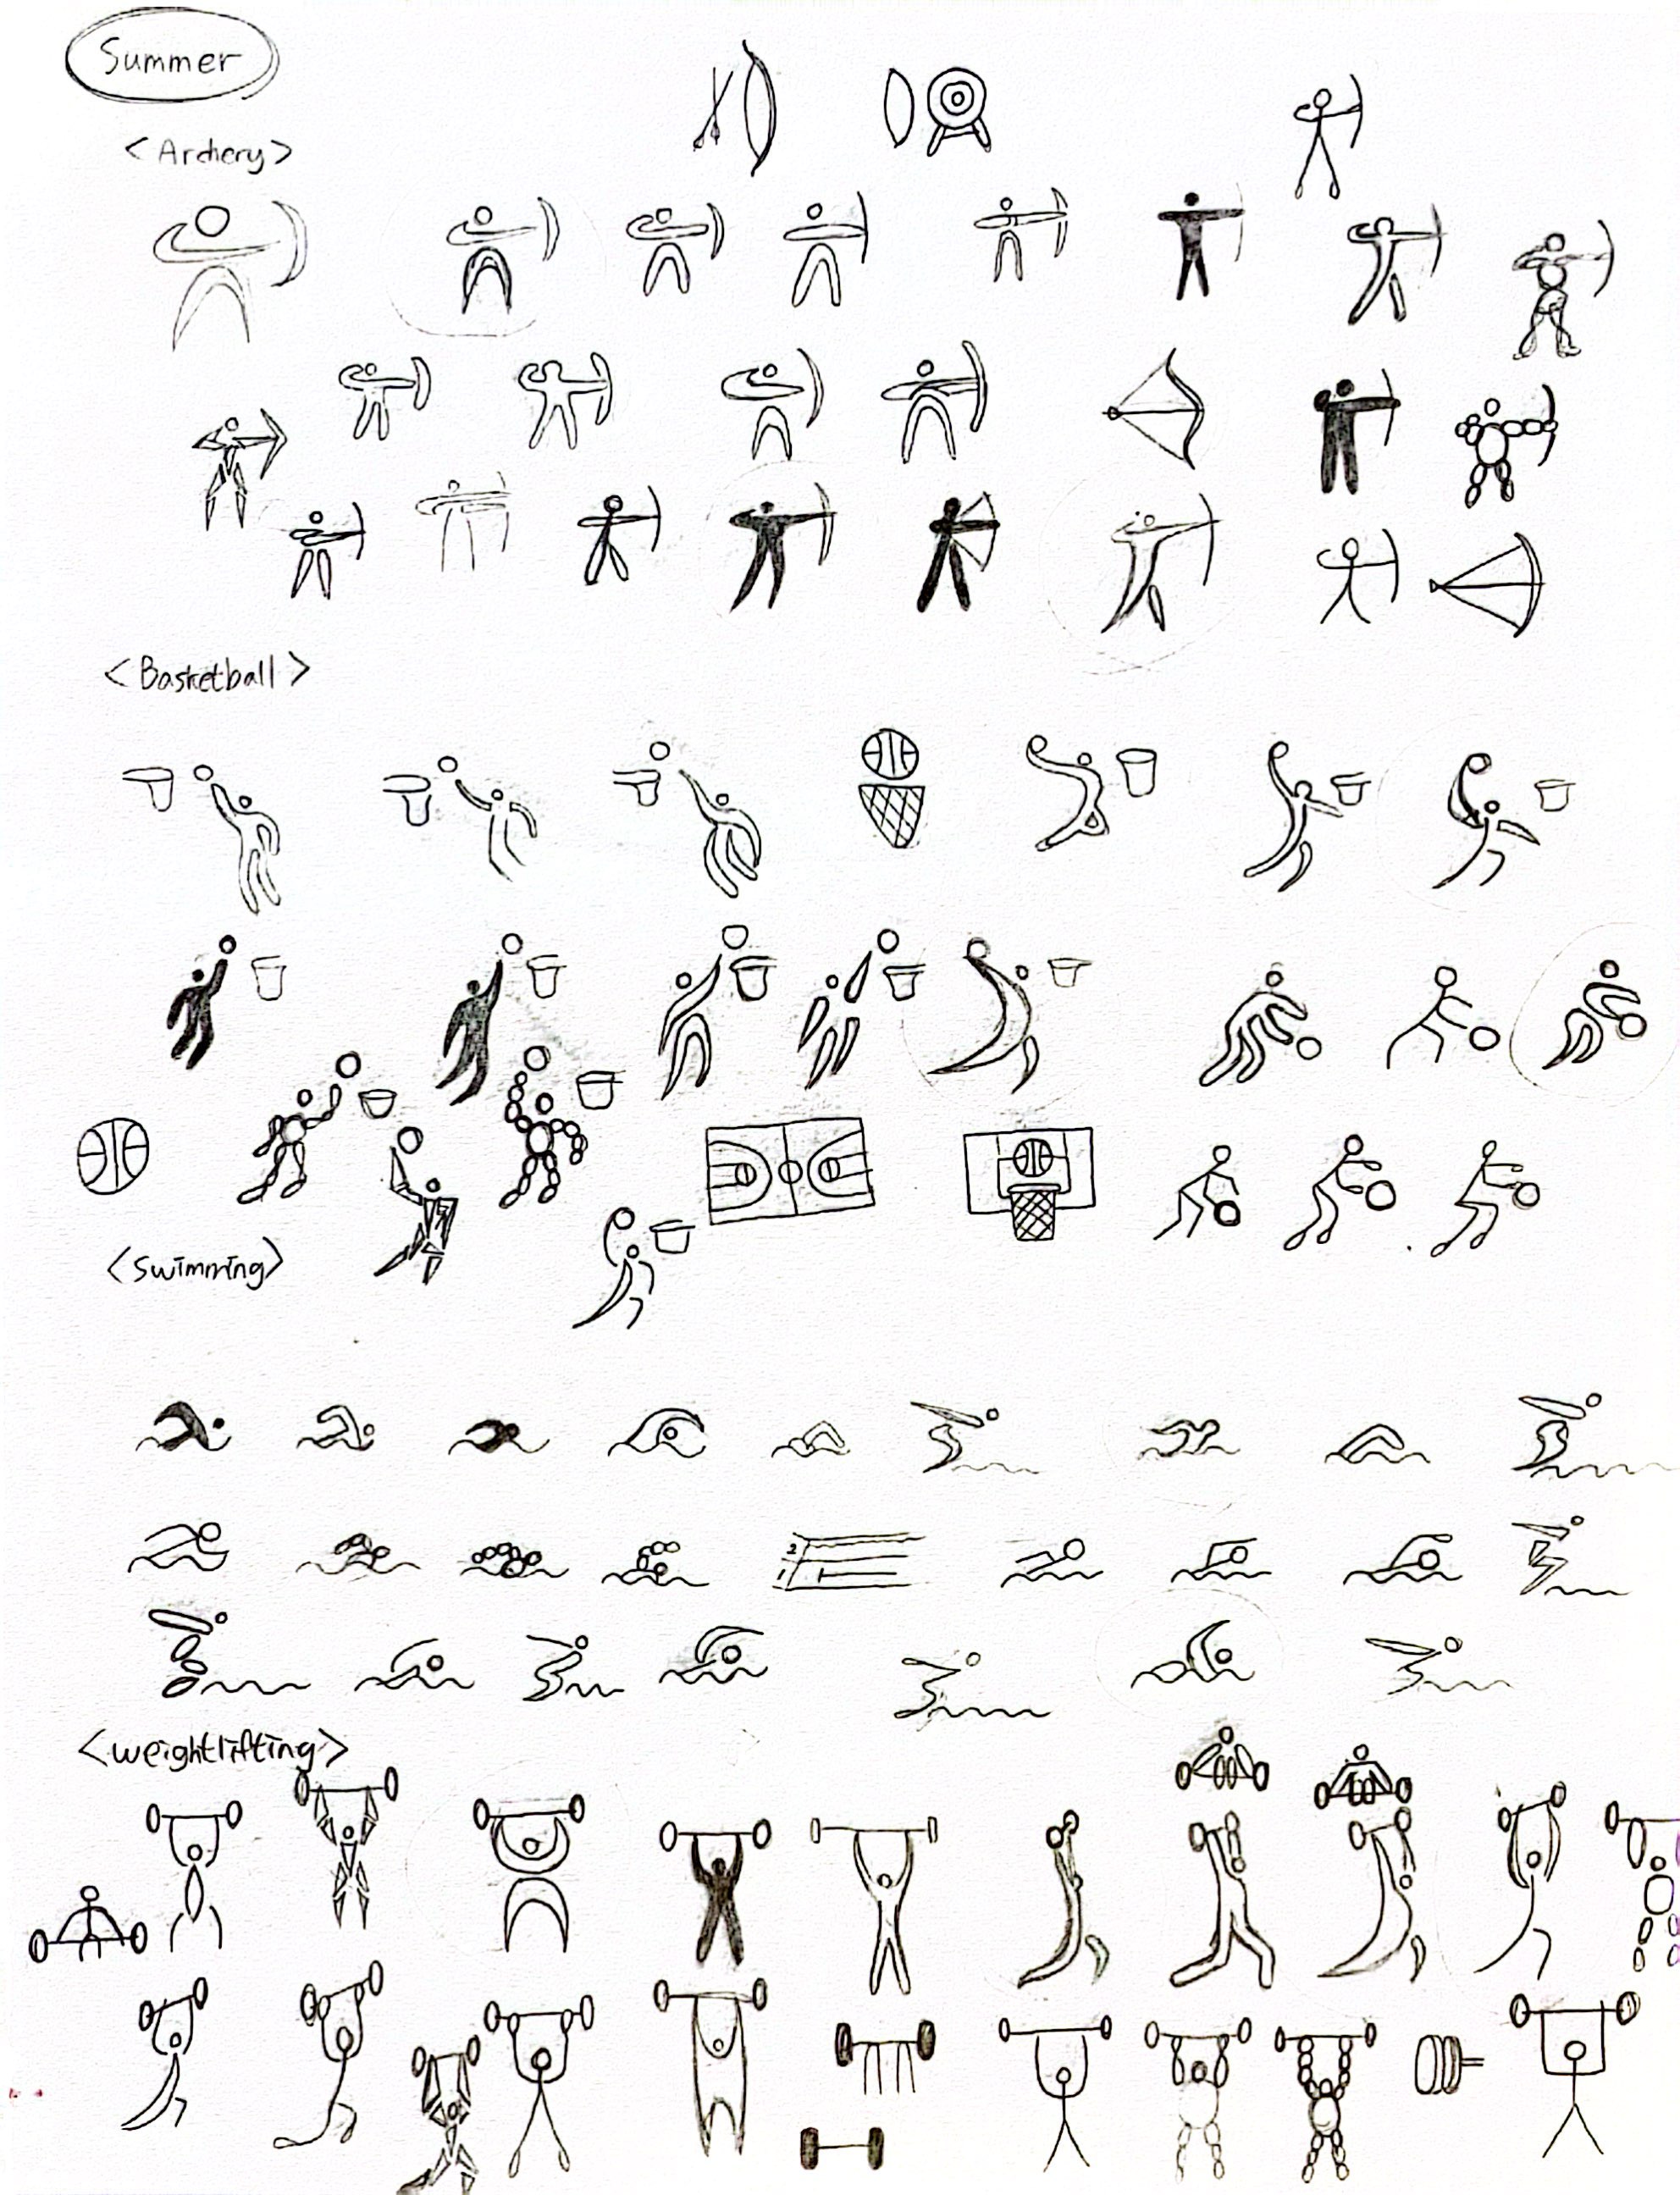 Summer
<Archery>
<Basketball>
<Swimming>
2
<weightlifting>